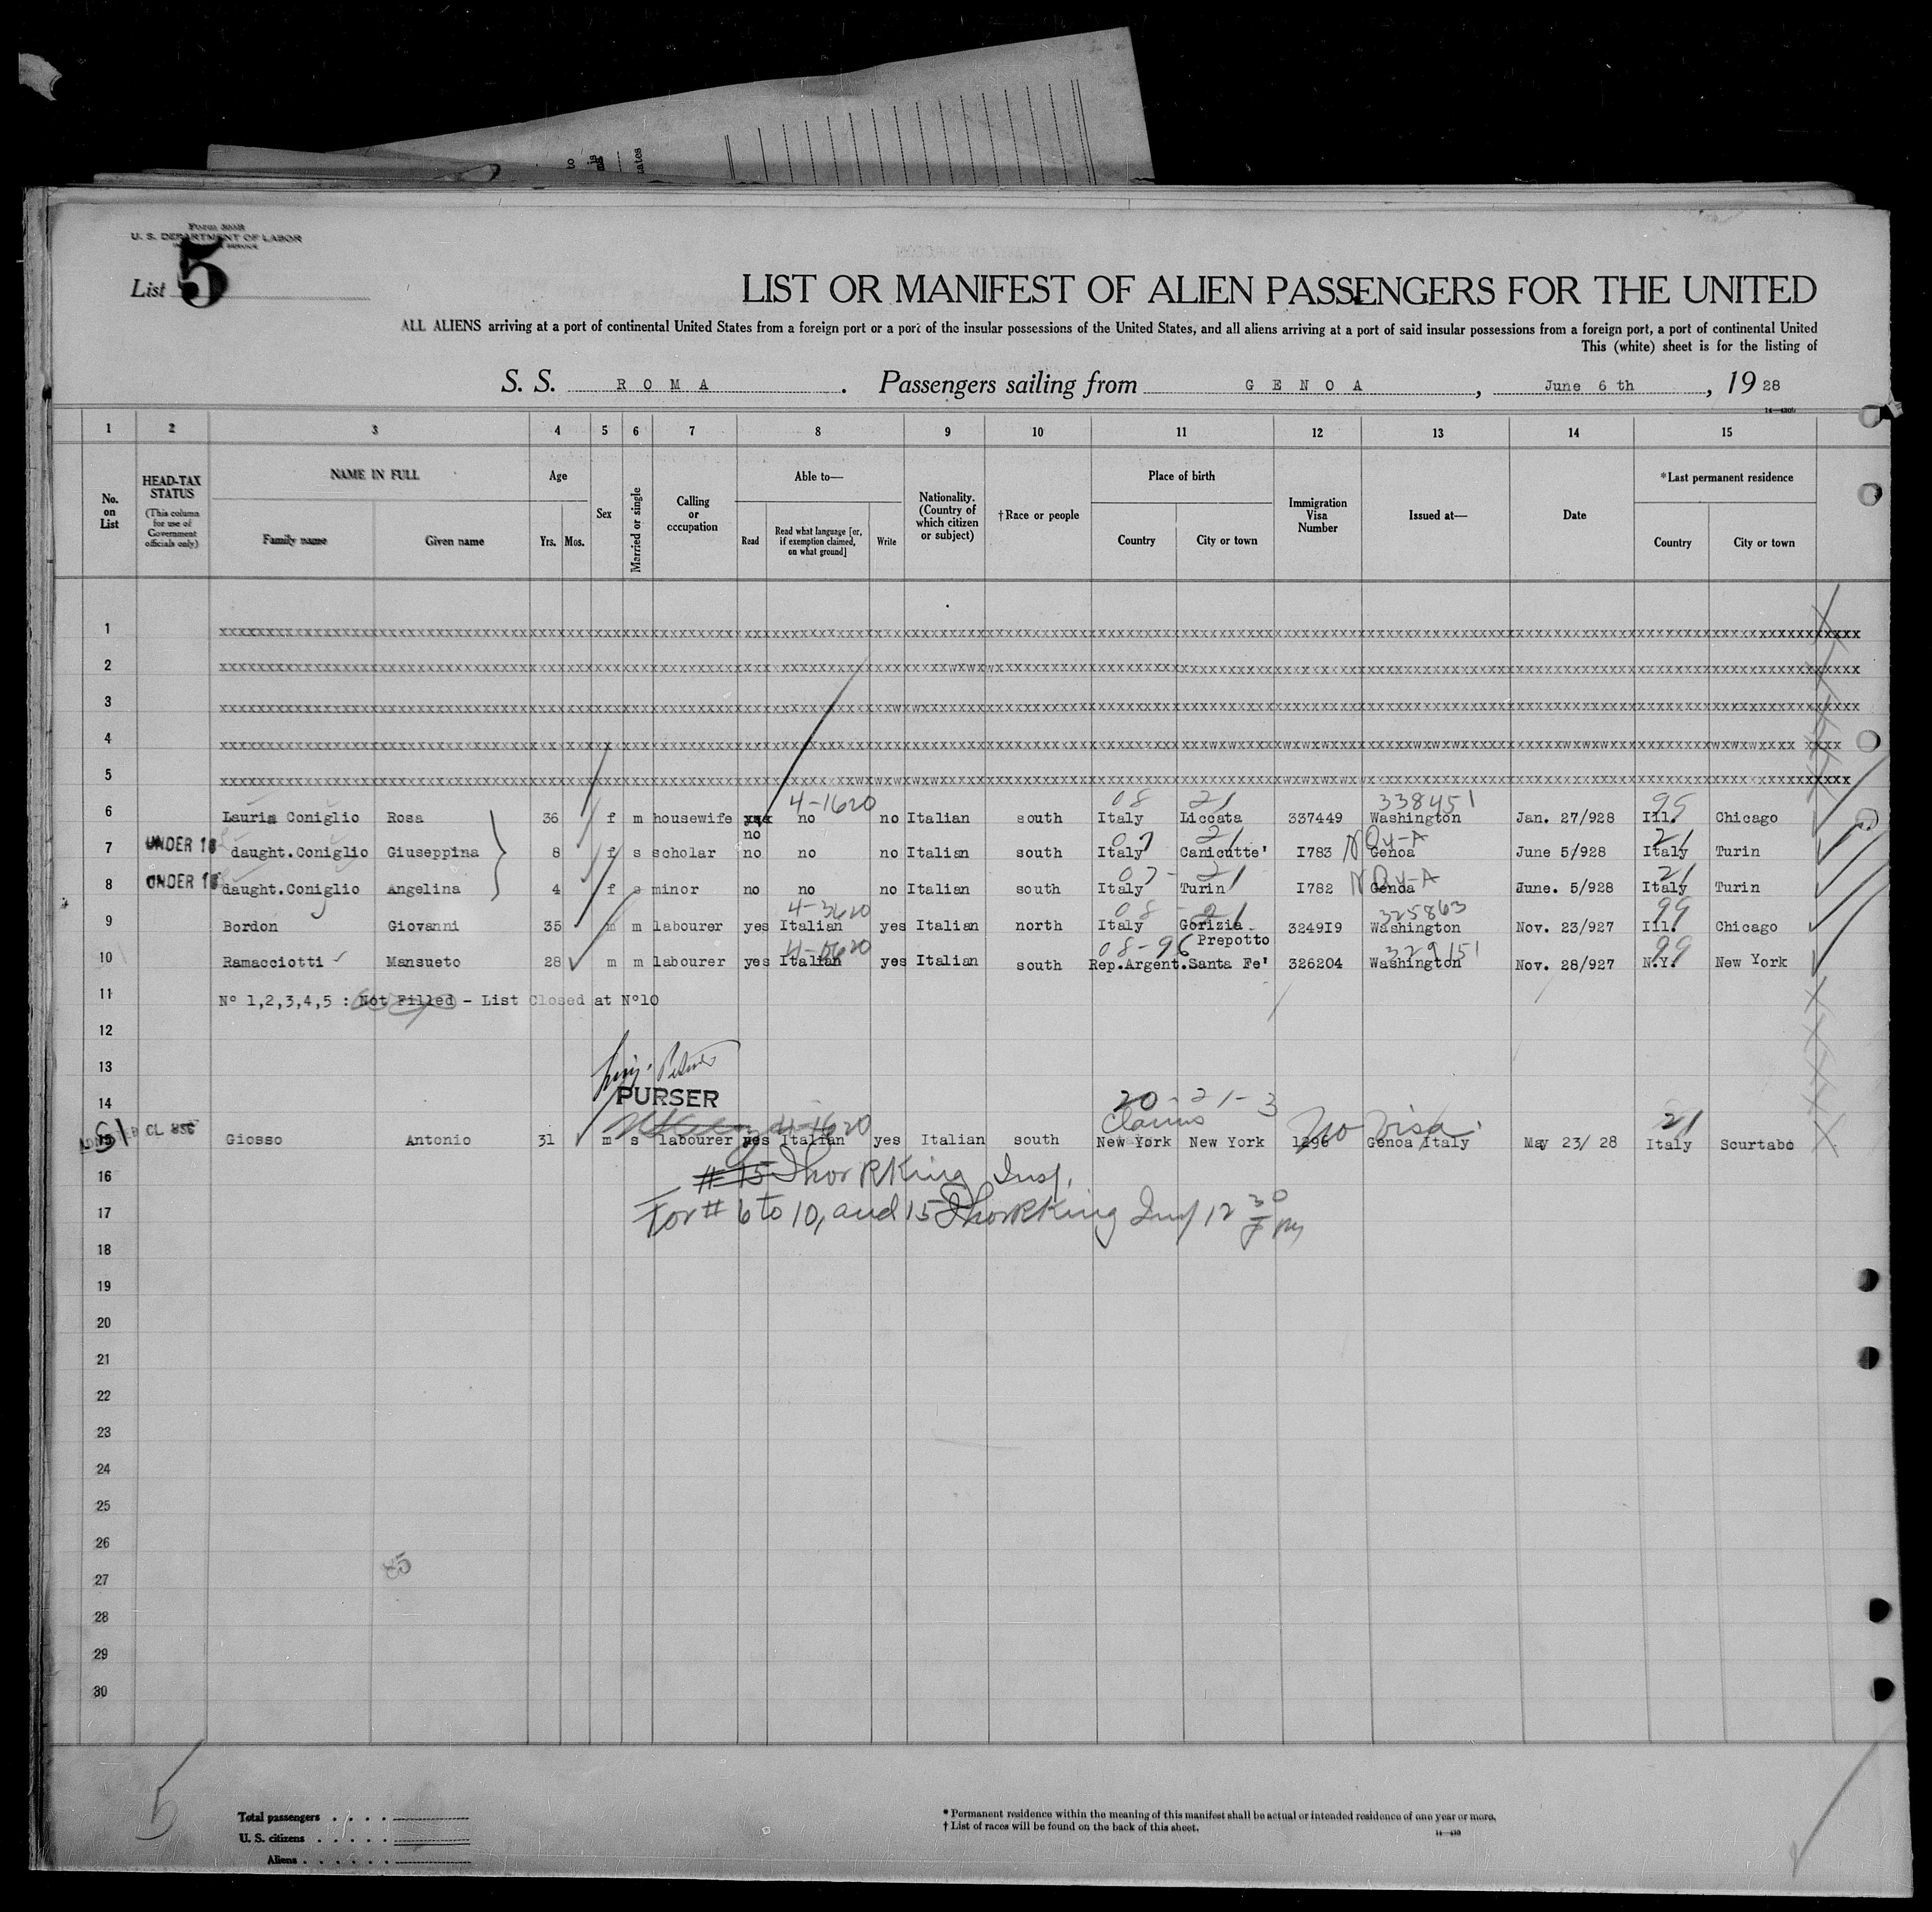 to
is
tates
Form 500B
U. S. DEPARTMENT OF LABOR
List 5
LIST OR MANIFEST OF ALIEN PASSENGERS FOR THE UNITED
ALL ALIENS arriving at a port of continental United States from a foreign port or a port of the insular possessions of the United States, and all aliens arriving at a port of said insular possessions from a foreign port, a port of continental United
This (white) sheet is for the listing of
S. S. ROMA. Passengers sailing from GENOA, June 6 th, 19 28
1 2 3 4 5 6 7 8 9 10 11 12 13 14 15
No. on List
HEAD-TAX STATUS (This column for use of Government officials only)
NAME IN FULL
Family name Given name
Age
Yrs. Mos.
Sex
Married or single
Calling or occupation
Able to—
Read Read what language [or, if exemption claimed, on what ground] Write
Nationality. (Country of which citizen or subject)
†Race or people
Place of birth
Country City or town
Immigration Visa Number
Issued at—
Date
*Last permanent residence
Country City or town
1
2
3
4
5
4-1620 08 21 338451 95
6 Lauria Coniglio Rosa 36 f m housewife xxx no no Italian south Italy Liccata 337449 Washington Jan. 27/928 Ill. Chicago
no 07 21 NQV-A 21
7 UNDER 16 daught.Coniglio Giuseppina 8 f s scholar no no no Italian south Italy Canicutte' I783 Genoa June 5/928 Italy Turin
07-21 NQV-A 21
8 UNDER 16 daught.Coniglio Angelina 4 f s minor no no no Italian south Italy Turin I782 Genoa June. 5/928 Italy Turin
4-3620 08-21 325863 99
9 Bordon Giovanni 35 m m labourer yes Italian yes Italian north Italy Gorizia 3249I9 Washington Nov. 23/927 Ill. Chicago
Prepotto
08-96 329151 99
10 Ramacciotti Mansueto 28 m m labourer yes Italian yes Italian south Rep.Argent.Santa Fe' 326204 Washington Nov. 28/927 N.Y. New York
11 N° 1,2,3,4,5 : Not Filled - List Closed at N°10
12
13
PURSER
14
20-21-3
Claims
4-1620 No Visa 21
15 Giosso Antonio 31 m s labourer yes Italian yes Italian south New York New York 1296 Genoa Italy May 23/ 28 Italy Scurtabo
16 # 15 Thor RKing Insp.
17 For # 6 to 10, and 15 Thor RKing Insp 12 30 pm
18
19
20
21
22
23
24
25
26
27
85
28
29
30
5
Total passengers
U. S. citizens
Aliens
* Permanent residence within the meaning of this manifest shall be actual or intended residence of one year or more.
† List of races will be found on the back of this sheet.